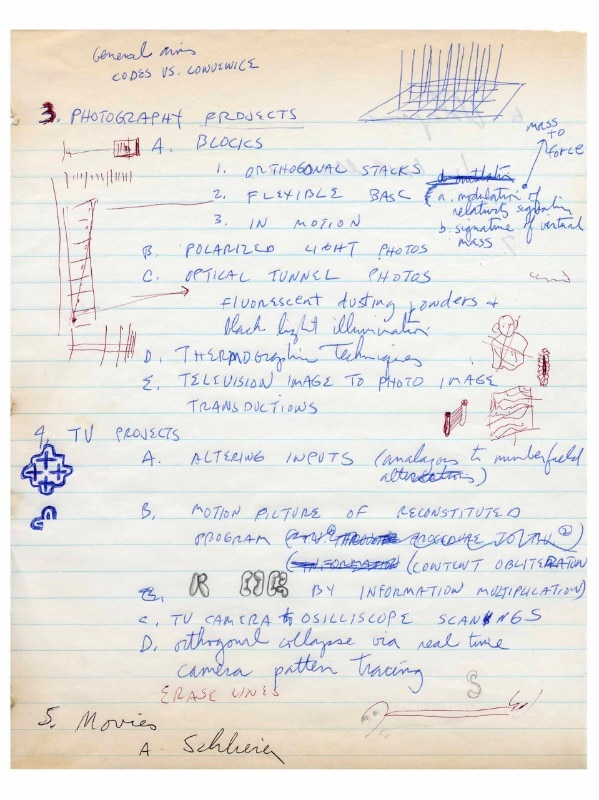 General aims
CODES VS. CONVENIENCE
3. PHOTOGRAPHY PROJECTS
MASS
TO
FORCE
A. BLOCKS
1. ORTHOGONAL STACKS
2. FLEXIBLE BASE
a. modulation of
relativity
3. IN MOTION
b. signature of virtual
mass
B. POLARIZED LIGHT PHOTOS
C. OPTICAL TUNNEL PHOTOS
fluorescent dusting powders +
black light illumination
D. THERMOGRAPHIC Techniques
E. TELEVISION IMAGE TO PHOTO IMAGE
TRANSDUCTIONS
4. TV PROJECTS
A. ALTERING INPUTS (analagous to numberfield
alterations)
B. MOTION PICTURE OF RECONSTITUTED
PROGRAM
PROCEDURE
(INFORMATION (CONTENT OBLITERATION
BY INFORMATION MULTIPLICATION)
C. TV CAMERA to OSILLISCOPE SCANNINGS
D. orthogonal collapse via real time
camera patten tracing
ERASE LINES
S
5. Movies
A. Schlieren